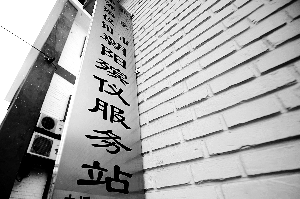 市朝阳殡仪服务站